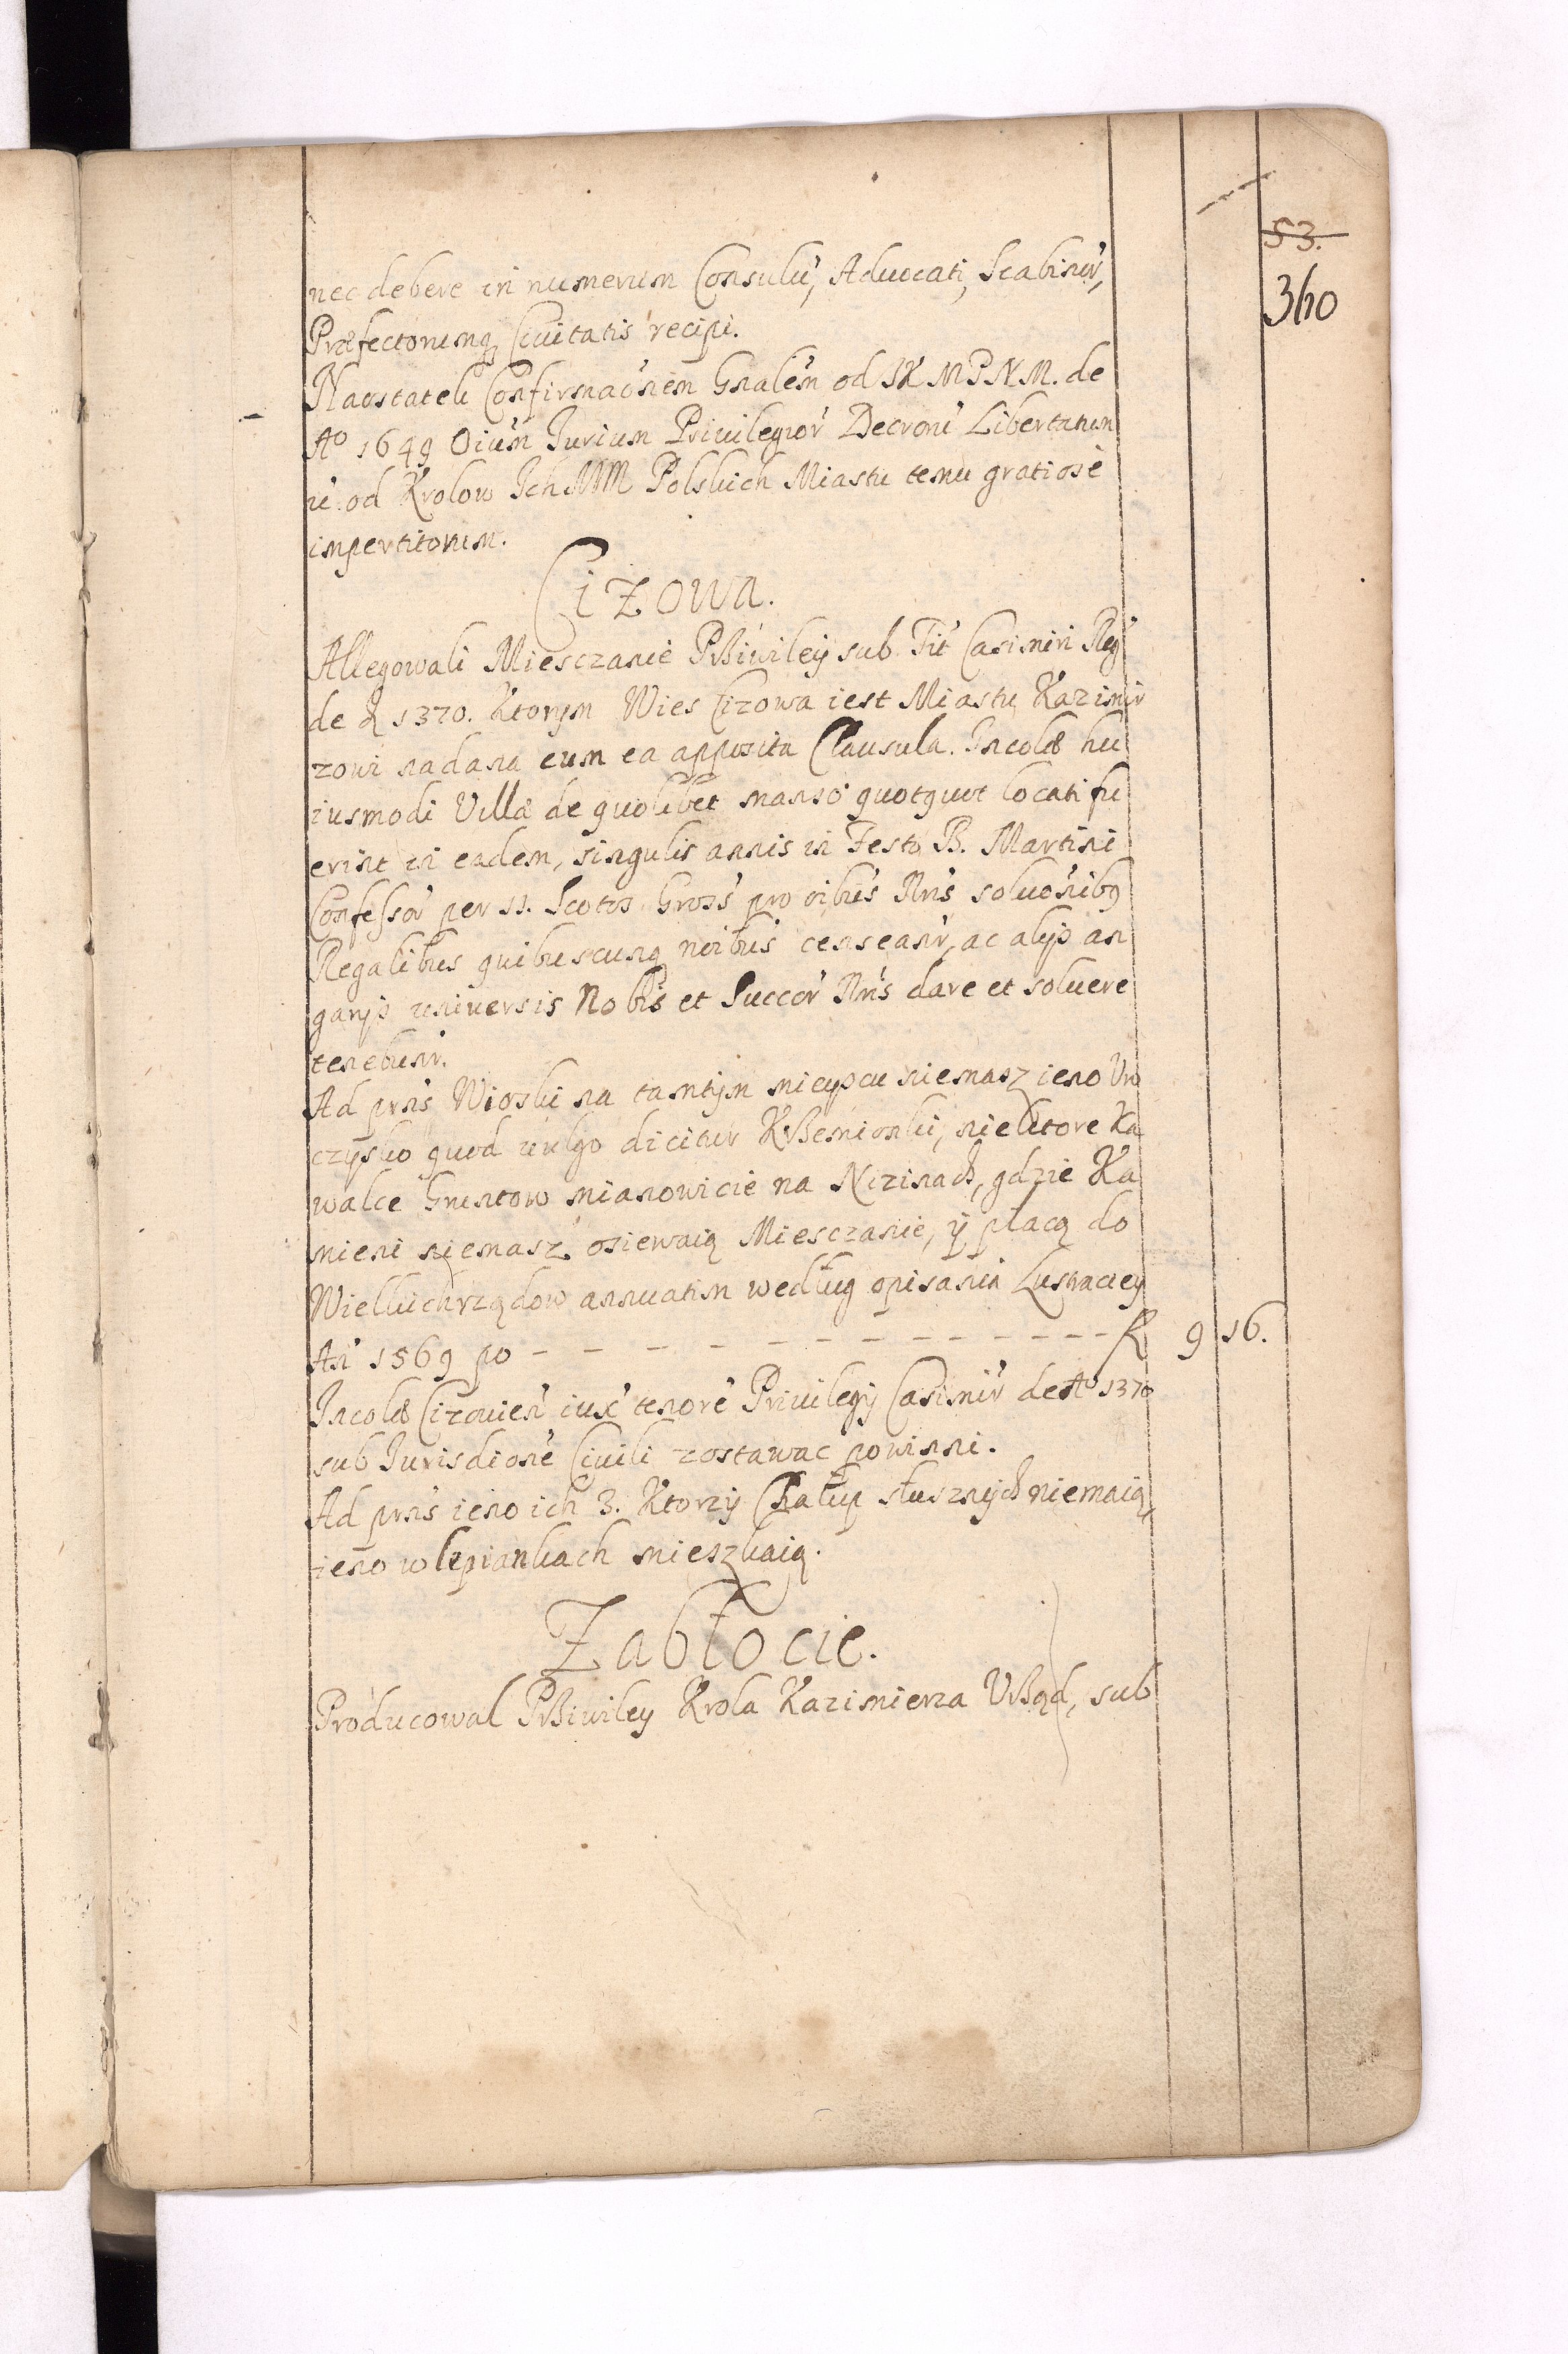 53.
360
nec debere in numerum Consulū, Aduocati, Scabinor̄,
Præfectorumq; Ciuitatis recipi.
Naostatek Confirmaōnem Gnalem od JKMPNM. de
Aº 1649 Oium Jurium Priuilegior̄ Decretorū Libertatum
ū od Krolow Ich MM Polskich Miastu temu gratiosè
impertitorum.
Cizowa.
Allegowali Miesczanie Prziwiley sub Tit Casimiri Reg
de A 1370. Ktorym Wies Cizowa iest Miastu Kazimir
zowi nadana cum ea apposita Clausula. Incolæ hu
iusmodi Villæ de quolibet manso quotquot locati fu
erint in eadem, singulis annis in Festo B. Martini
Confessor̄ per 11. Scotos Gross pro oibus Nris soluōnibq
Regalibus quibuscunq noibus censeant̄, ac alijs an
garijs uniuersis Nobis et Succor̄ Nris dare et soluere
tenebunt̄.
Ad prns Wioski na tamtym mieyscu niemasz ieno Vro
czysko quod uulgo dicitur Krzemionki, niektore Ka
walce Gruntow mianowicie na Nizinach, gdzie Ka
mieni niemasz osiewaią Miesczanie, y płacą do
Wielkichrządow annuatim według opisania Lustraciey
An 1569 po - - - - - - - - - - - - f 9 16.
Incolæ Cizouien iux tenorē Priuilegij Casimir̄ de Aº 1370
sub Jurisdionē Ciuili zostawac powinni.
Ad prns ieno ich 3. Ktorzy Chałup słusznych niemaią,
ieno w lepiankach mieszkaią.
Zabłocie.
Producowal Prziwiley Krola Kazimierza Vrząd, sub